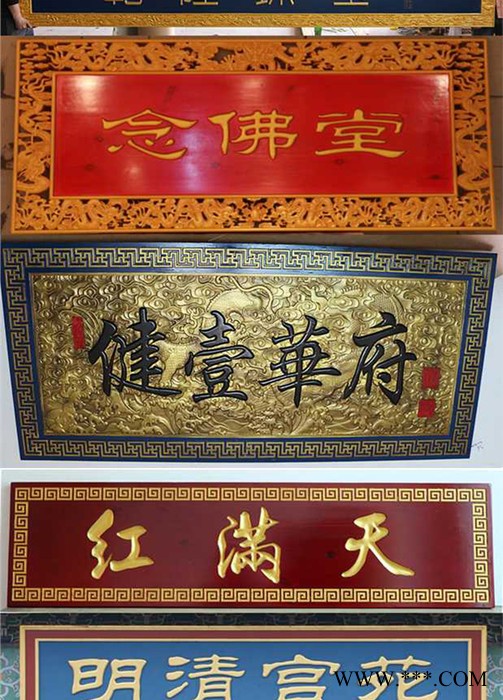 念佛堂
健壹華府
红滿天
明清宫苑
www.***.COM